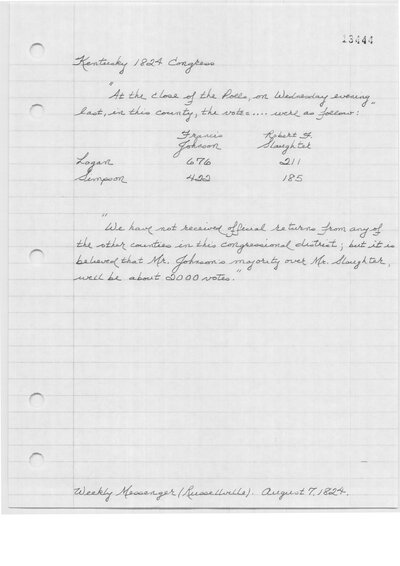 13444
Kentucky 1824 Congress
"At the close of the Polls, on Wednesday evening
last, in this county, the votes.... were as follow:"
Francis Robert F.
Johnson Slaughter
Logan 676 211
Simpson 422 185
"We have not received official returns from any of
the other counties in this congressional district; but it is
believed that Mr. Johnson's majority over Mr. Slaughter,
will be about 2000 votes."
Weekly Messenger (Russellville). August 7, 1824.